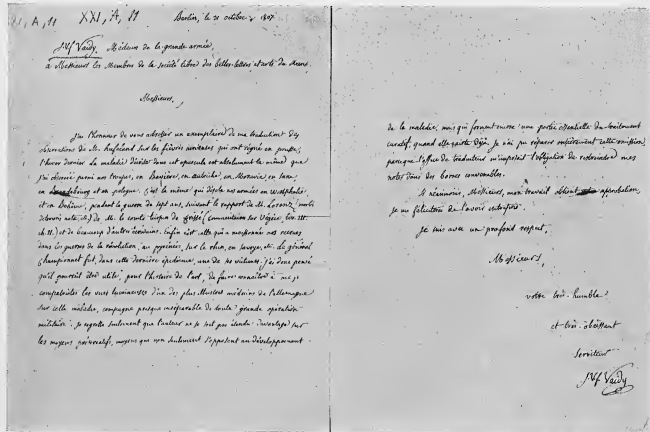 XXI, A, 11
Berlin, le 31 octobre 1807
J.V.f Vaidy, Médecin de la grande armée,
a Messieurs les Membres de la société libre des belles-lettres et arts du
Messieurs,
J'ai l'honneur de vous adresser un exemplaire de ma traduction des
observations de M. Hufeland sur les fièvres nerveuses qui ont régné en prusse,
l'hiver dernier. La maladie décrite dans cet opuscule est absolument la même que
j'ai observée parmi nos troupes, en Bavière, en autriche, en Moravie, en Saxe,
en et en pologne. C'est la même qui désola nos armées en Westphalie
et en Bohême, pendant la guerre de sept ans, suivant le rapport de M. Lorentz (morbi
etc.) de M. le comte turpin de Crissé (commentaires sur Végèce, liv. III.
ch. II.) et de beaucoup d'autres écrivains. Enfin c'est celle qui a moissonné nos
dans les guerres de la révolution, au pyrénées, sur le rhin, en savoye, etc. Le général
Championnet fut, dans cette dernière épidémie, une de ses victimes. J'ai donc pensé
qu'il pourrait être utile, pour l'histoire de l'art, de faire connaître à mes
compatriotes les vues lumineuses d'un des plus illustres médecins de l'allemagne
sur cette maladie, compagne presque inséparable de toute grande opération
militaire. Je regrette seulement que l'auteur ne se soit pas étendu davantage sur
les moyens préservatifs, moyens qui non seulement s'opposent au développement
de la maladie, mais qui forment encore une partie essentielle du traitement
curatif, quand elle existe déjà. Je n'ai pu réparer entièrement cette omission,
parceque l'office de traducteur m'imposait l'obligation de restreindre mes
notes dans des bornes convenables.
Si néanmoins, Messieurs, mon travail obtient approbation,
je me féliciterai de l'avoir entrepris.
Je suis avec un profond respect,
Messieurs,
votre très-humble
et très-obéissant
serviteur
J.V.f Vaidy